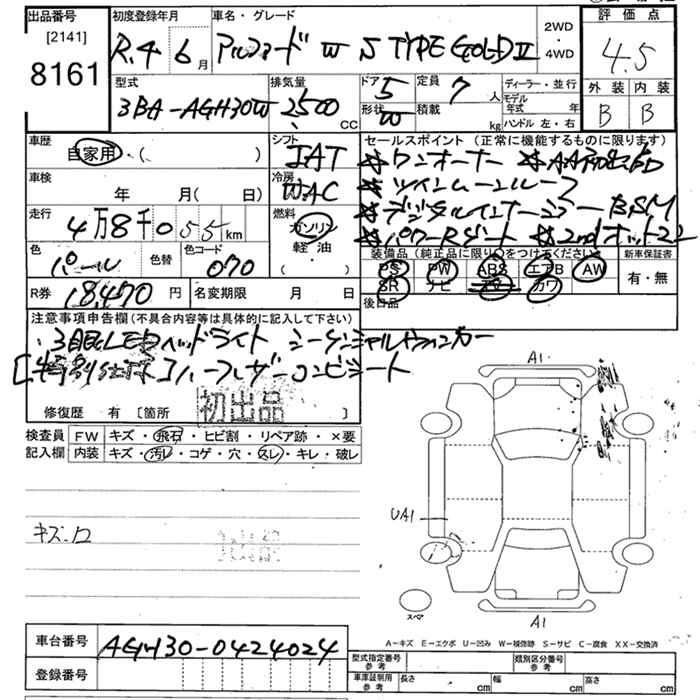 出品番号
[2141]
8161
初度登録年月
R.4 6月
車名・グレード
アルファード W S TYPE GOLD II
2WD
・
4WD
評価点
4.5
外装 内装
B B
型式
3BA-AGH30W
排気量
2500 CC
ドア 5
形状 W
定員 7 人
積載 kg
ディーラー・並行
モデル年式 年
ハンドル 左・右
車歴
自家用・( )
車検
年 月( 日)
走行
4万8千055km
色
パール
色替
色コード
070
シフト
IAT
冷房
WAC
燃料
ガソリン
・
軽油
( )
セールスポイント (正常に機能するものに限ります)
※ワンオーナー
※ツインムーンルーフ
※デジタルインナーミラー BSM
※パワーRゲート
装備品 (純正品に限り○をつけてください)
新車保証書
PS PW ABS エアB AW
SR ナビ カワ
有・無
後日品
R券 18470 円
名変期限 月 日
注意事項申告欄(不具合内容等は具体的に記入して下さい)
3眼LEDヘッドライト シーケンシャルウィンカー
[特別仕様]ハーフレザーコンビシート
修復歴 有 [箇所 ]
初出品
検査員 記入欄
FW キズ・飛石・ヒビ割・リペア跡・×要
内装 キズ・汚レ・コゲ・穴・スレ・キレ・破レ
キズ.
A1
UA1
スペア
A1
A-キズ E-エクボ U-凹み W-補修跡 S-サビ C-腐食 XX-交換済
車台番号 AGH30-0424024
登録番号
型式指定番号 参考
類別区分番号 参考
車庫証明用 参考
長さ cm 幅 cm 高さ cm